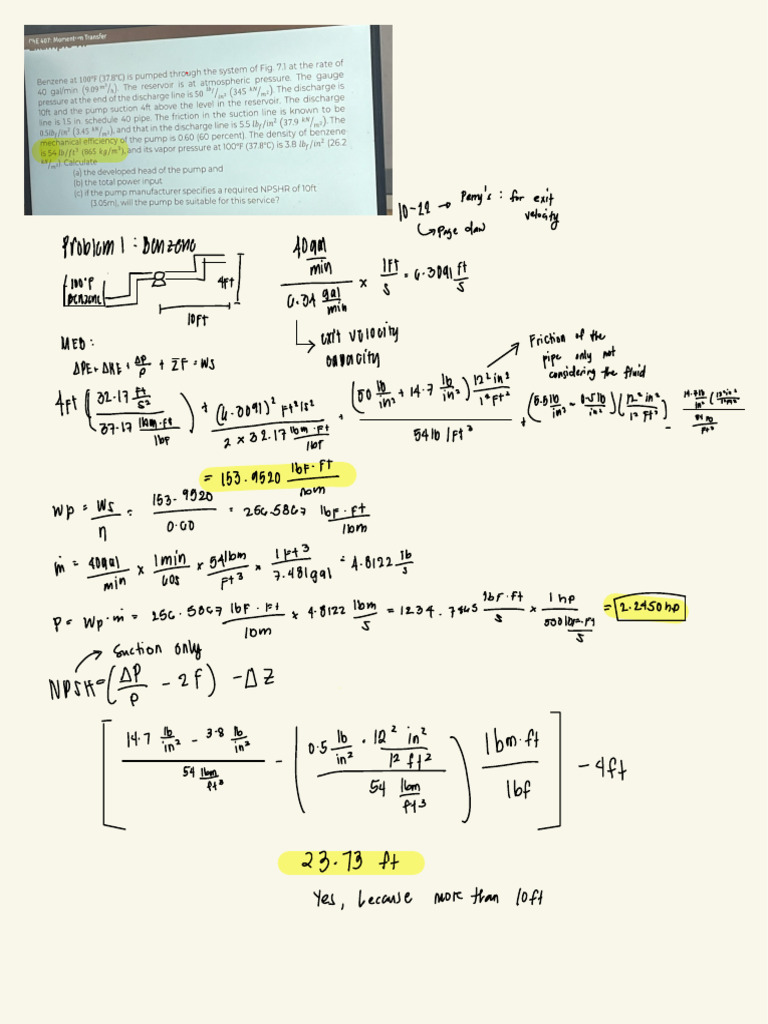 ChE 407: Momentum Transfer
Benzene at 100°F (37.8°C) is pumped through the system of Fig. 7.1 at the rate of
40 gal/min (9.09 m³/h). The reservoir is at atmospheric pressure. The gauge
pressure at the end of the discharge line is 50 lb_f/in² (345 kN/m²). The discharge is
10ft and the pump suction 4ft above the level in the reservoir. The discharge
line is 1.5 in. schedule 40 pipe. The friction in the suction line is known to be
0.5lb_f/in² (3.45 kN/m²), and that in the discharge line is 5.5 lb_f/in² (37.9 kN/m²). The
mechanical efficiency of the pump is 0.60 (60 percent). The density of benzene
is 54 lb/ft³ (865 kg/m³), and its vapor pressure at 100°F (37.8°C) is 3.8 lb_f/in² (26.2
kN/m²) Calculate
(a) the developed head of the pump and
(b) the total power input
(c) if the pump manufacturer specifies a required NPSHR of 10ft
(3.05m), will the pump be suitable for this service?
10-22 → Perry's : for exit velocity
↳ Page
Problem 1 : Benzene
100°F
Benzene
4ft
10ft
40 gal/min / 6.34 gal/min × 1ft/s = 6.3091 ft/s
↳ exit velocity
capacity
MEB:
ΔPE + ΔKE + ΔP/ρ + ΣF = Ws
Friction of the
pipe only not
considering the fluid
4ft (32.17 ft/s² / 37.17 lbm·ft/lbf) + (6.3091)² ft²/s² / 2 × 32.17 lbm·ft/lbf + (50 lb/in² + 14.7 lb/in²) 12² in²/1² ft² / 54 lb/ft³ + (5.5 lb/in² - 0.5 lb/in²)(12² in²/1² ft²) - 14.7 lb/in²
= 153.9520 lbf·ft/lbm
Wp = Ws/η = 153.9520/0.60 = 256.5867 lbf·ft/lbm
ṁ = 40gal/min × 1min/60s × 54lbm/ft³ × 1ft³/7.481gal = 4.8122 lb/s
P = Wp·ṁ = 256.5867 lbf·ft/lbm × 4.8122 lbm/s = 1234.7465 lbf·ft/s × 1 hp/550 lbf·ft/s = 2.2450 hp
Suction only
NPSH = (ΔP/ρ - ΣF) - ΔZ
[14.7 lb/in² - 3.8 lb/in² / 54 lbm/ft³ - (0.5 lb/in² · 12² in²/12 ft² / 54 lbm/ft³) lbm·ft/lbf] - 4ft
23.73 ft
Yes, because more than 10ft